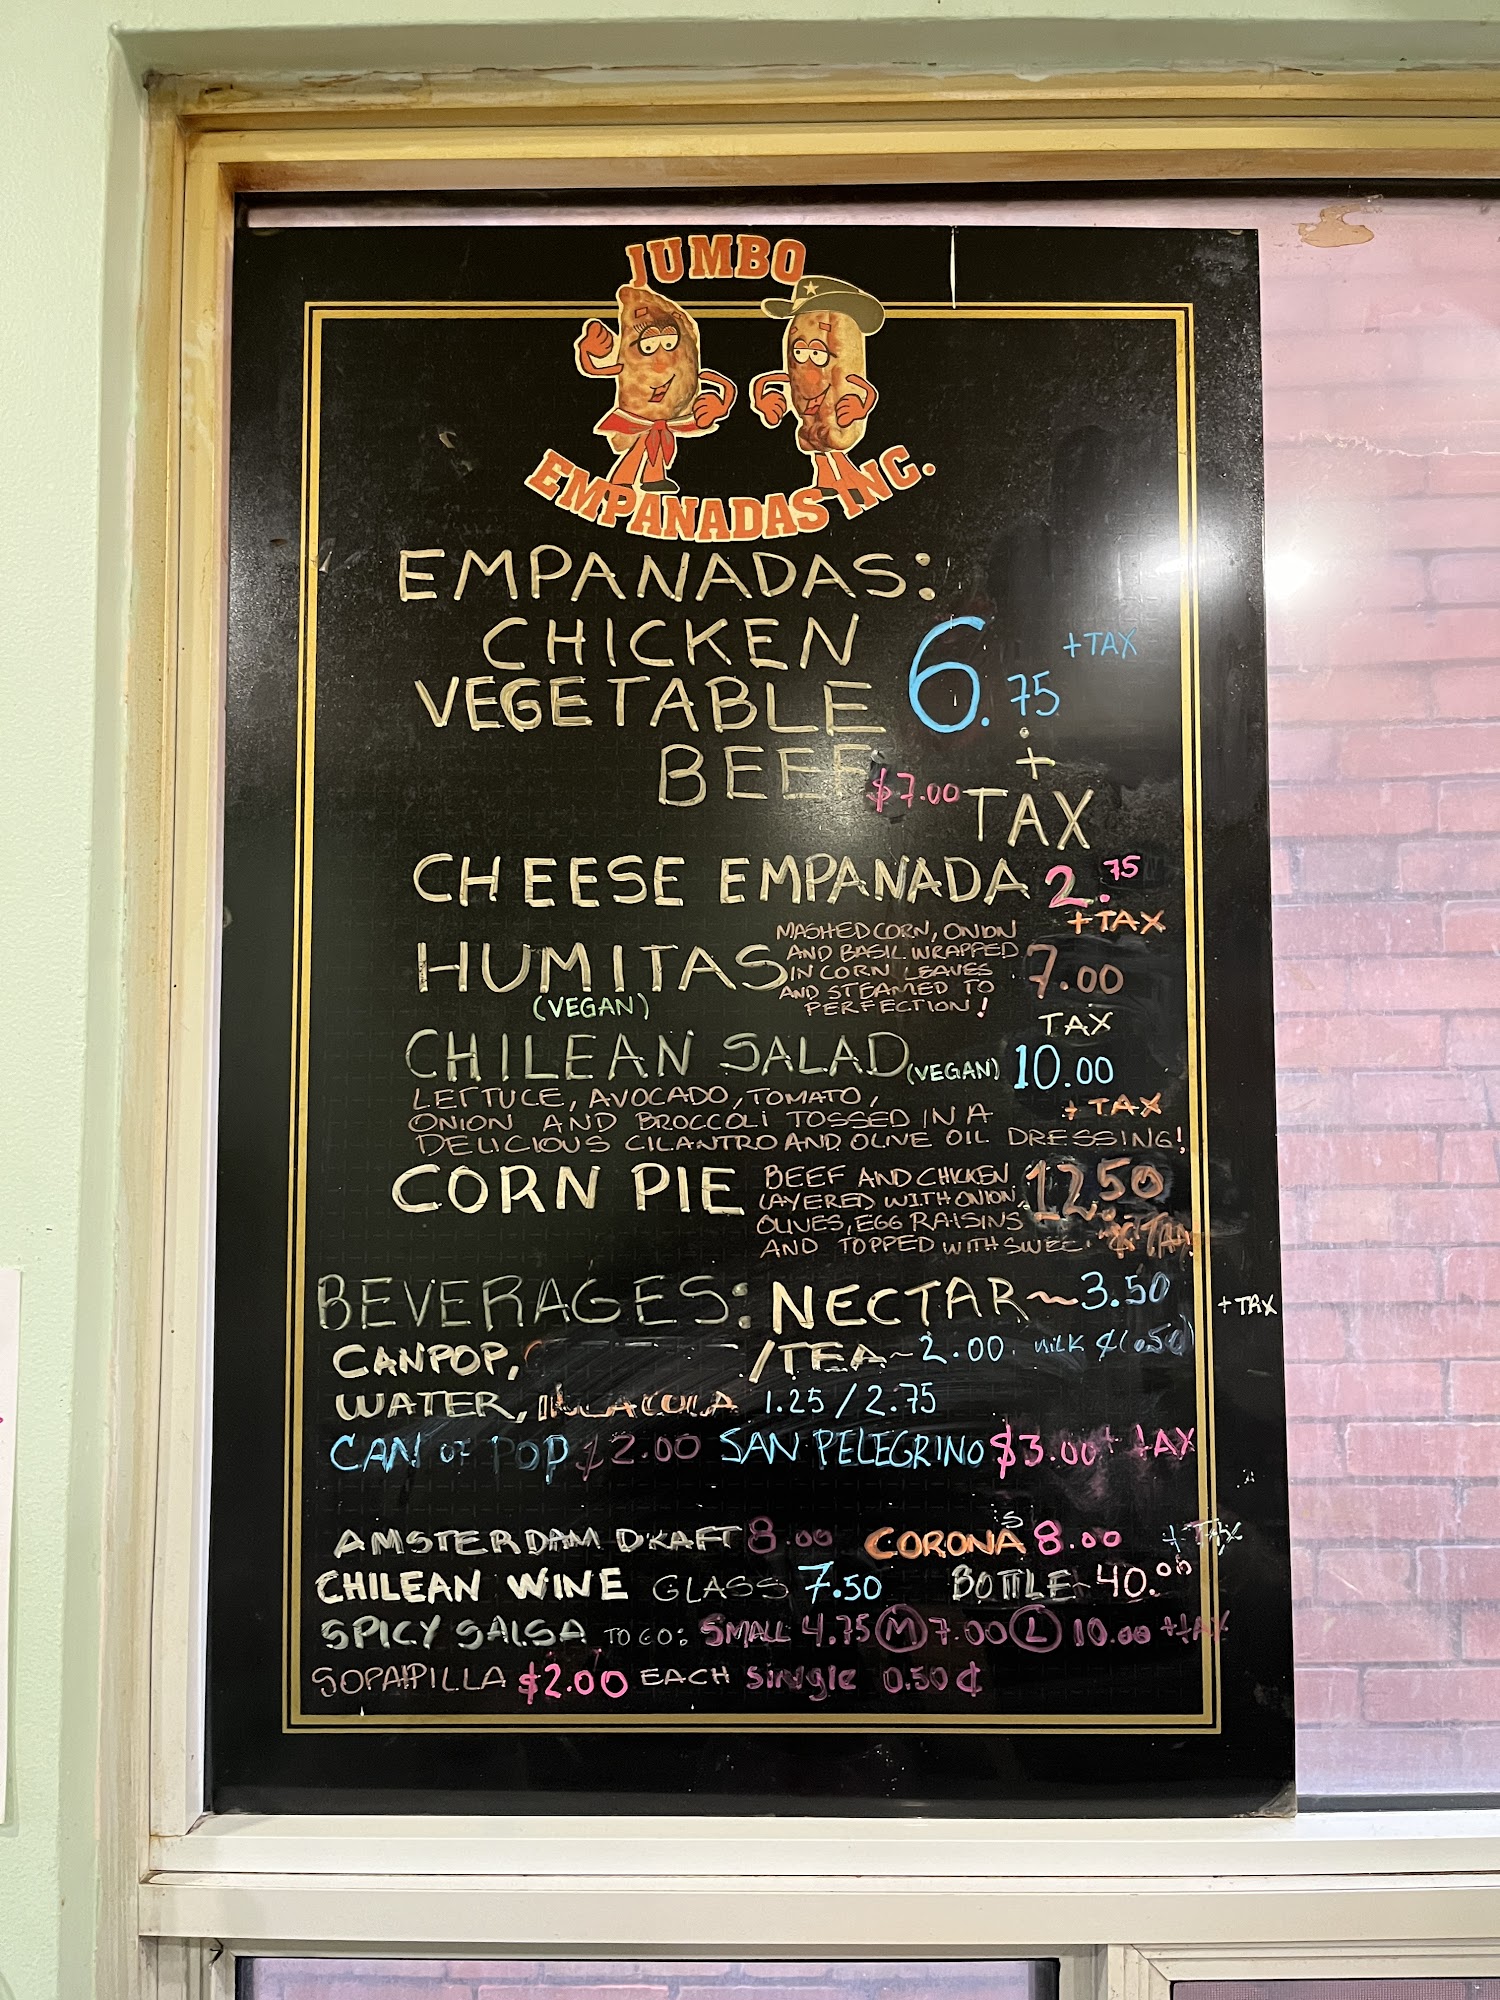 JUMBO
EMPANADAS INC.
EMPANADAS:
CHICKEN
VEGETABLE 6.75 +TAX
BEEF $7.00 + TAX
CHEESE EMPANADA 2.75
+TAX
HUMITAS MASHED CORN, ONION
AND BASIL WRAPPED
IN CORN LEAVES 7.00
AND STEAMED TO
(VEGAN) PERFECTION!
TAX
CHILEAN SALAD (VEGAN) 10.00
LETTUCE, AVOCADO, TOMATO, + TAX
ONION AND BROCCOLI TOSSED IN A
DELICIOUS CILANTRO AND OLIVE OIL DRESSING!
CORN PIE BEEF AND CHICKEN 12.50
LAYERED WITH ONION
OLIVES, EGG RAISINS
AND TOPPED WITH SWEE TAX
BEVERAGES: NECTAR ~ 3.50 +TAX
CANPOP, /TEA ~ 2.00 MILK
WATER, 1.25 / 2.75
CAN OF POP $2.00 SAN PELEGRINO $3.00 + TAX
AMSTERDAM DRAFT 8.00 CORONAS 8.00 +TAX
CHILEAN WINE GLASS 7.50 BOTTLE 40.00
SPICY SALSA TO GO: SMALL 4.75 M 7.00 L 10.00 +TAX
SOPAIPILLA $2.00 EACH Single 0.50¢